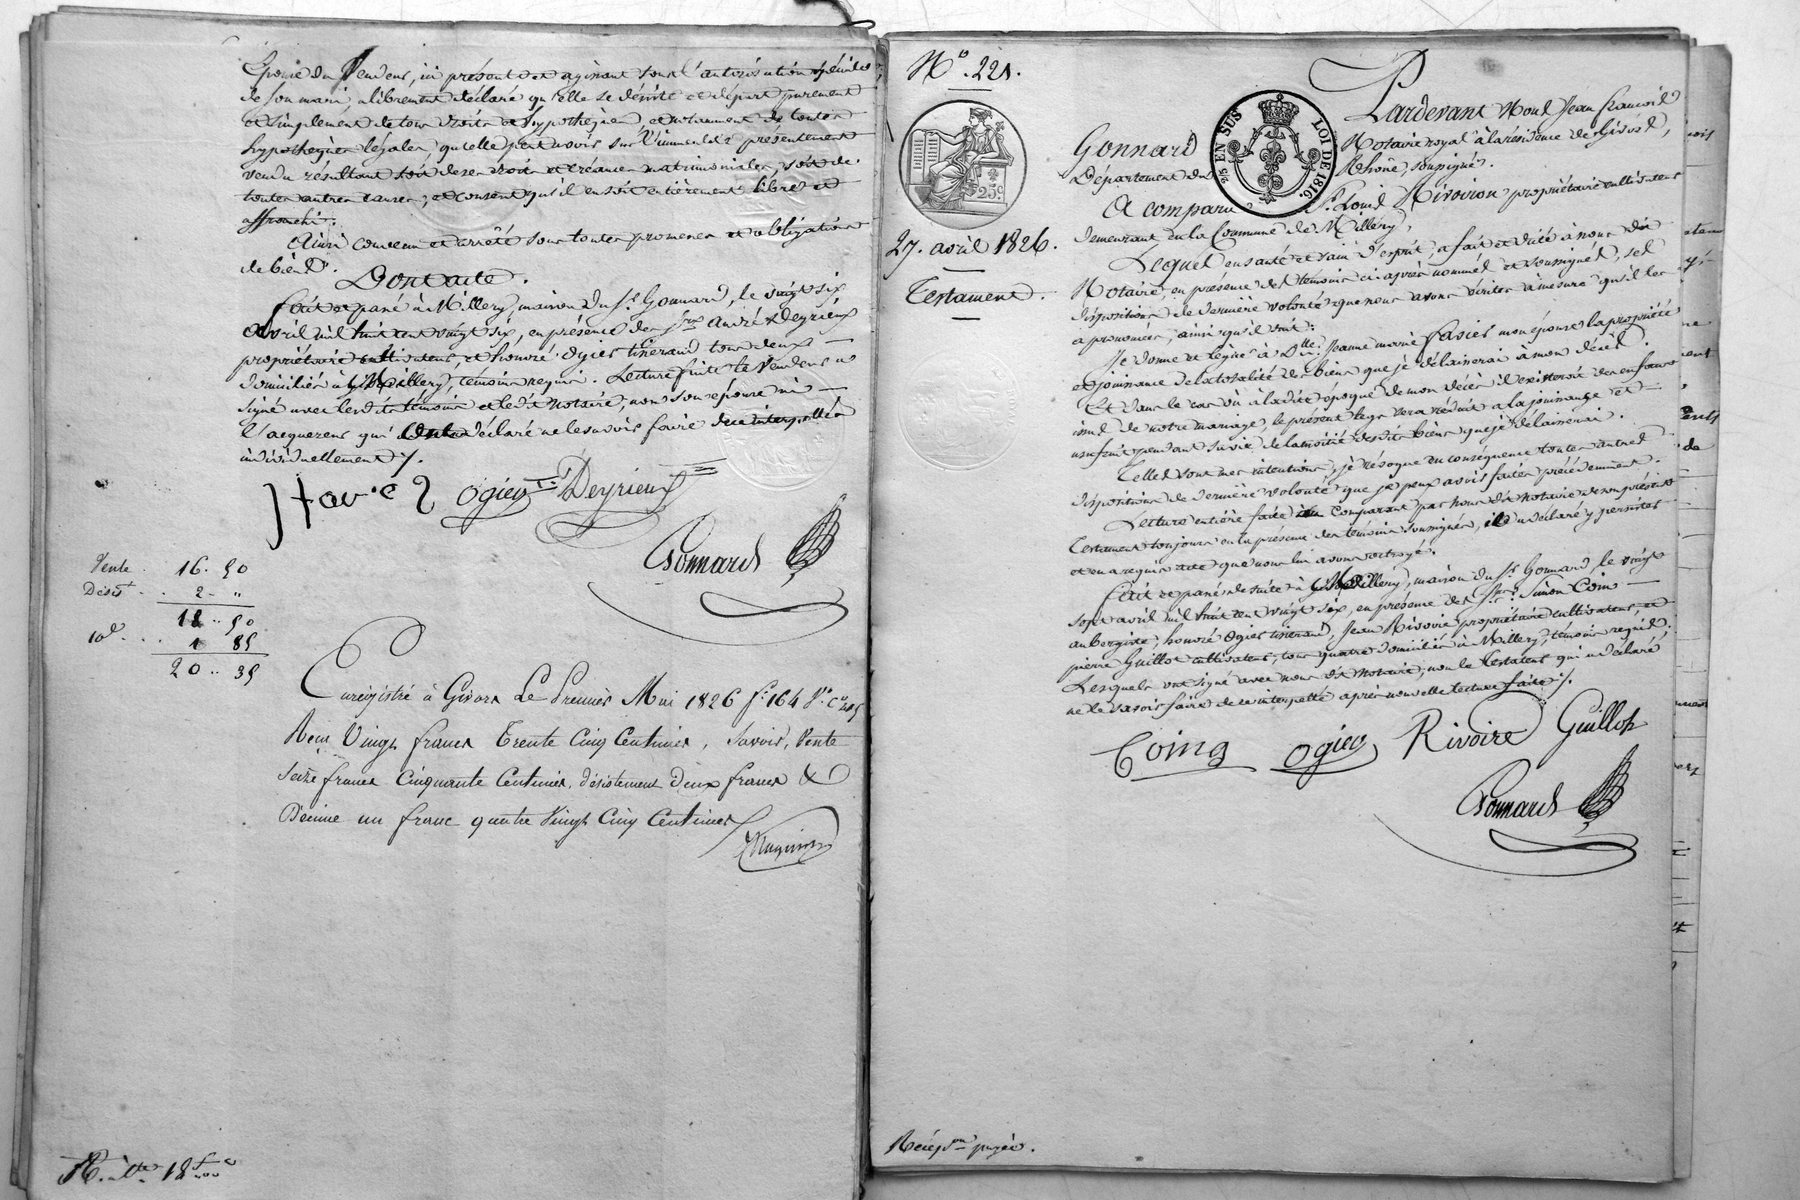 Epouse du Vendeur, ici présente et agissant sous l'autorisation spéciale
de son mari, a librement déclaré qu'elle se désiste et départ purement
et simplement de tous droits et hypothèques, et notamment de toutes
hypothèques légales qu'elle peut avoir sur l'immeuble présentement
vendu résultant soit de ses droits et créances matrimoniales, soit de
toutes autres causes; et consent qu'il en soit entièrement libre et
affranchi.
Ainsi convenu et arrêté sous toutes promesses et obligations
de biens.
Dont acte.
Fait et passé à Millery, maison du Sr. Gonnard, le vingt six
avril mil huit cent vingt six, en présence des Srs. André Deyrieux
propriétaire cultivateur, et honoré Ogier tisserand tous deux
domiciliés à Millery, témoins requis. Lecture faite le Vendeur a
signé avec lesdits témoins et ledit notaire, non son épouse ni
l'acquéreur qui ont déclaré ne le savoir faire de ce interpellés
individuellement ./.
Ogier Deyrieux
Gonnard
Vente . 16. 50
Désist . . 2 - "
18 .. 50
10e . . . 1 85
20 .. 35
Enregistré à Givors Le Premier Mai 1826 f° 164 V° C°
Reçu Vingt francs Trente Cinq Centimes, Savoir, Vente
Seize francs Cinquante Centimes, désistement deux francs &
Décime un franc quatre Vingt Cinq Centimes
N°. 221.
25 c.
27. avril 1826.
Testament.
25 EN SUS LOI DE 1816.
Pardevant Nous Jean François
Gonnard Notaire royal à la résidence de Givors,
Département du Rhône, soussigné.
A comparu Sr. Louis Rivoiron propriétaire cultivateur
demeurant en la Commune de Millery,
Lequel en santé et sain d'esprit, a fait et dicté à nous dit
Notaire, en présence des témoins ci-après nommés et soussignés, ses
dispositions de dernière volonté que nous avons écrites à mesure qu'il les
a prononcées, ainsi qu'il suit:
Je donne et lègue à Dlle. Jeanne marie Favier mon épouse la propriété
et jouissance de la totalité des biens que je délaisserai à mon décès.
Et dans le cas où à ladite époque de mon décès il existeroit des enfans
issus de notre mariage, le présent legs sera réduit à la jouissance et
usufruit pendant sa vie de la moitié desdits biens que je délaisserai.
Telles sont mes intentions, je révoque en conséquence toutes autres
dispositions de dernière volonté que je peux avoir faites précédemment.
Lecture entière faite au Comparant par nous dit notaire de son présent
testament toujours en la présence des témoins soussignés, il a déclaré y persister
et en a requis acte que nous lui avons octroyé.
Fait et passé de suite à Millery, maison du Sr. Gonnard, le vingt
sept avril mil huit cent vingt six, en présence des Srs. Simon Coin
aubergiste, honoré Ogier tisserand, Jean Rivoire propriétaire cultivateur, et
pierre Guillot cultivateur, tous quatre domiciliés à Millery, témoins requis,
Lesquels ont signé avec nous dit Notaire, non le testateur qui a déclaré
ne le savoir faire de ce interpellé après nouvelle lecture faite ./.
Coing Ogier Rivoire Guillot
Gonnard